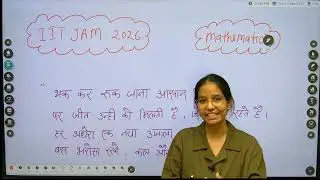 IIT JAM 2026
Mathematics
थक कर रुक जाना आसान
पर जीत उन्ही को मिलती है, रहते है।
हर अंधेरा एक नया उजाला
बस भरोसा रखो,